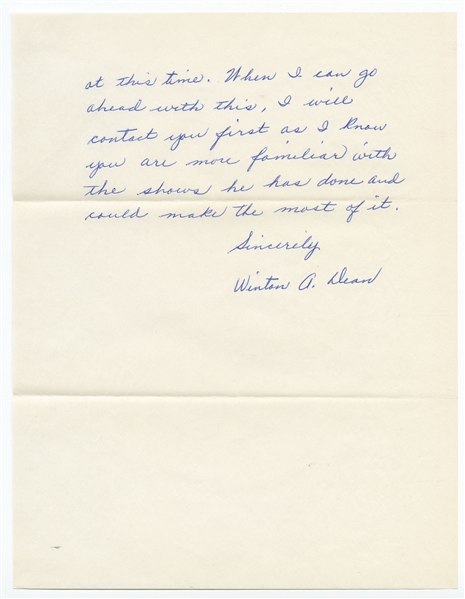 at this time. When I can go
ahead with this, I will
contact you first as I know
you are more familiar with
the shows he has done and
could make the most of it.
Sincerily
Winton A. Dean